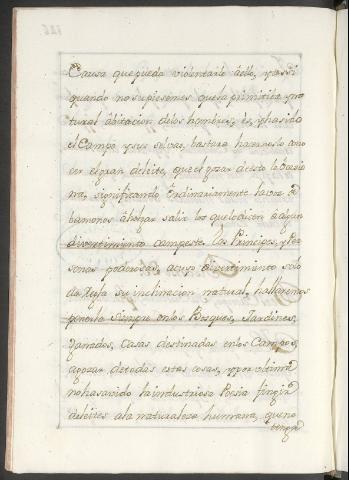 Causa que pueda violentarle à ello, y assi
quando no supiesemos que la primitiva, y na
tural àbitacion delos hombres, és, y ha sido
el Campo, y sus selvas, bastara hacernoslo cono
cer el gran deleite, que el gozar de esto le ocasio
na, significando Ordinariamente la voz â
bamonos à holgar salir los que lo dicen à algun
divertimiento campestre. Los Principes, y Per
sonas poderosas, à cuyo divertimento solo
da Regla su inclinacion natural, hallaremos
ponerla siempre en los Bosques, Jardines,
ganados, Casas destinadas en los Campos,
à gozar de todas estas cosas, y por ultimo
no ha savido la industriosa Poesia fingir
deleites ala naturaleza humana, que no
tengan